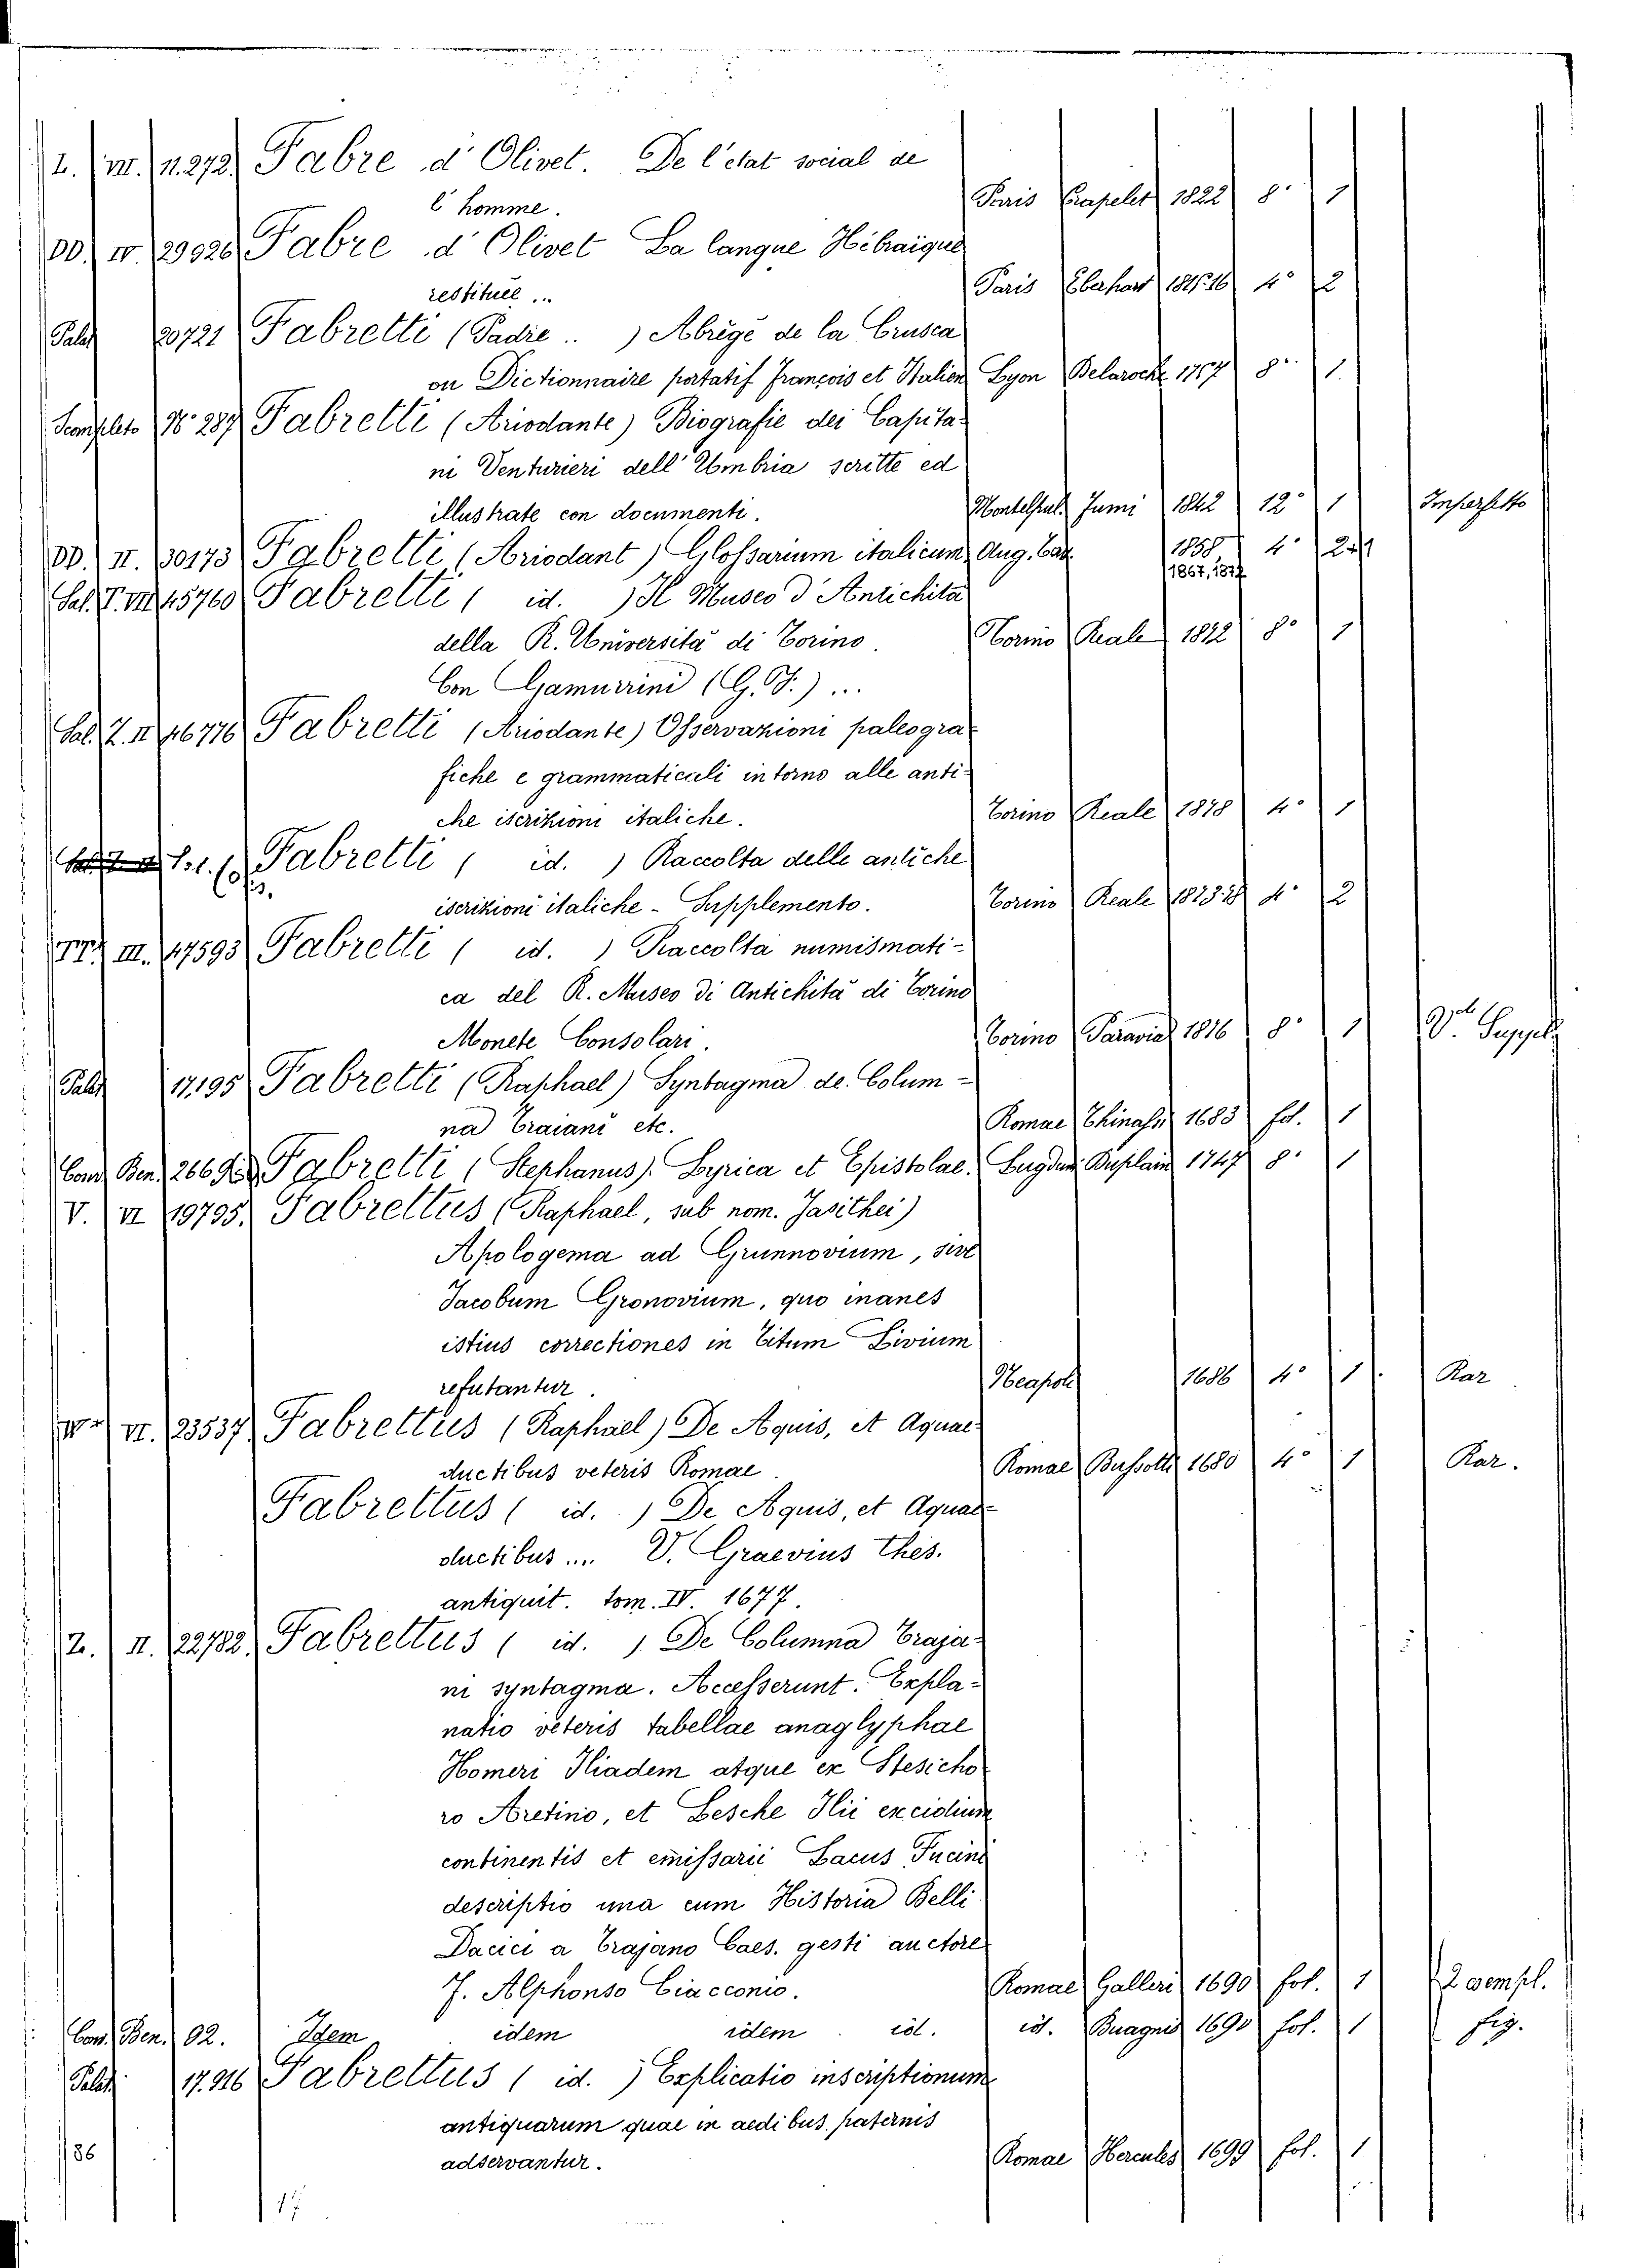 L. VII. 11.272. Fabre d'Olivet. De l'etat social de
l'homme. Paris Crapelet 1822 8° 1
DD. IV. 29926 Fabre d'Olivet La langue Hebraique
restituee ... Paris Eberhart 1815.16 4° 2
Palat 20721 Fabretti (Padre .. ) Abrégé de la Crusca
ou Dictionnaire portatif François et Italien Lyon Delaroche 1757 8° 1.
N° 287 Fabretti (Ariodante) Biografie dei Capita-
ni Venturieri dell'Umbria scritte ed
illustrate con documenti. Montelpul. Fumi 1842 12° 1 Imperfetto
DD. II. 30173 Fabretti (Ariodant) Glossarium italicum, Aug. Taur 1858 4° 2
1867, 1877
Sal. T. VII 45760 Fabretti ( id. ) Il Museo d'Antichità
della R. Università di Torino. Torino Reale 1822 8° 1
Con Gamurrini (G. F.) ...
Sal. Z. II 46776 Fabretti (Ariodante) Osservazioni paleogra-
fiche e grammaticali intorno alle anti-
che iscrizioni italiche. Torino Reale 1878 4° 1
Fabretti ( id. ) Raccolta delle antiche
iscrizioni italiche - Supplemento. Torino Reale 1873.78 4° 2
TT. III. 47593 Fabretti ( id. ) Raccolta numismati-
ca del R. Museo di Antichità di Torino
Monete Consolari. Torino Paravia 1876 8° 1 Suppl.
Palat 17.195 Fabretti (Raphael) Syntagma de Colum-
na Traiani etc. Romae Chinassi 1683 fol. 1
Cons. Ben. 266 Fabretti (Stephanus). Lyrica et Epistolae. Lugdun Duplain 1747 8° 1
V. VI 19795. Fabrettus (Raphael, sub nom. Jasithei)
Apologema ad Grunnovium, sive
Jacobum Gronovium, quo inanes
istius correctiones in Titum Livium
refutantur. Neapoli 1686 4° 1 Rar
VI. 23537 Fabrettus (Raphael) De Aquis, et Aquae-
ductibus veteris Romae. Romae Bussotti 1680 4° 1 Rar.
Fabrettus ( id. ) De Aquis, et Aquae-
ductibus .... V. Graevius Thes.
antiquit. tom. IV. 1677.
Z. II. 22782. Fabrettus ( id. ) De Columna Traja-
ni syntagma. Accesserunt. Expla-
natio veteris tabellae anaglyphae
Homeri Iliadem atque ex Stesicho
ro Aretino, et Lesche Ilii excidium
continentis et emissarii Lacus Fucini
descriptio una cum Historia Belli
Dacici a Trajano Caes. gesti auctore
F. Alphonso Ciacconio. Romae Galleri 1690 fol. 1 2 esempl.
Cons. Ben. 92. Idem idem idem id. id. Buagni 1690 fol. 1 fig.
Palat. 17.916 Fabrettus ( id. ) Explicatio inscriptionum
antiquarum quae in aedibus paternis
adservantur. Romae Hercules 1699 fol. 1
86
17